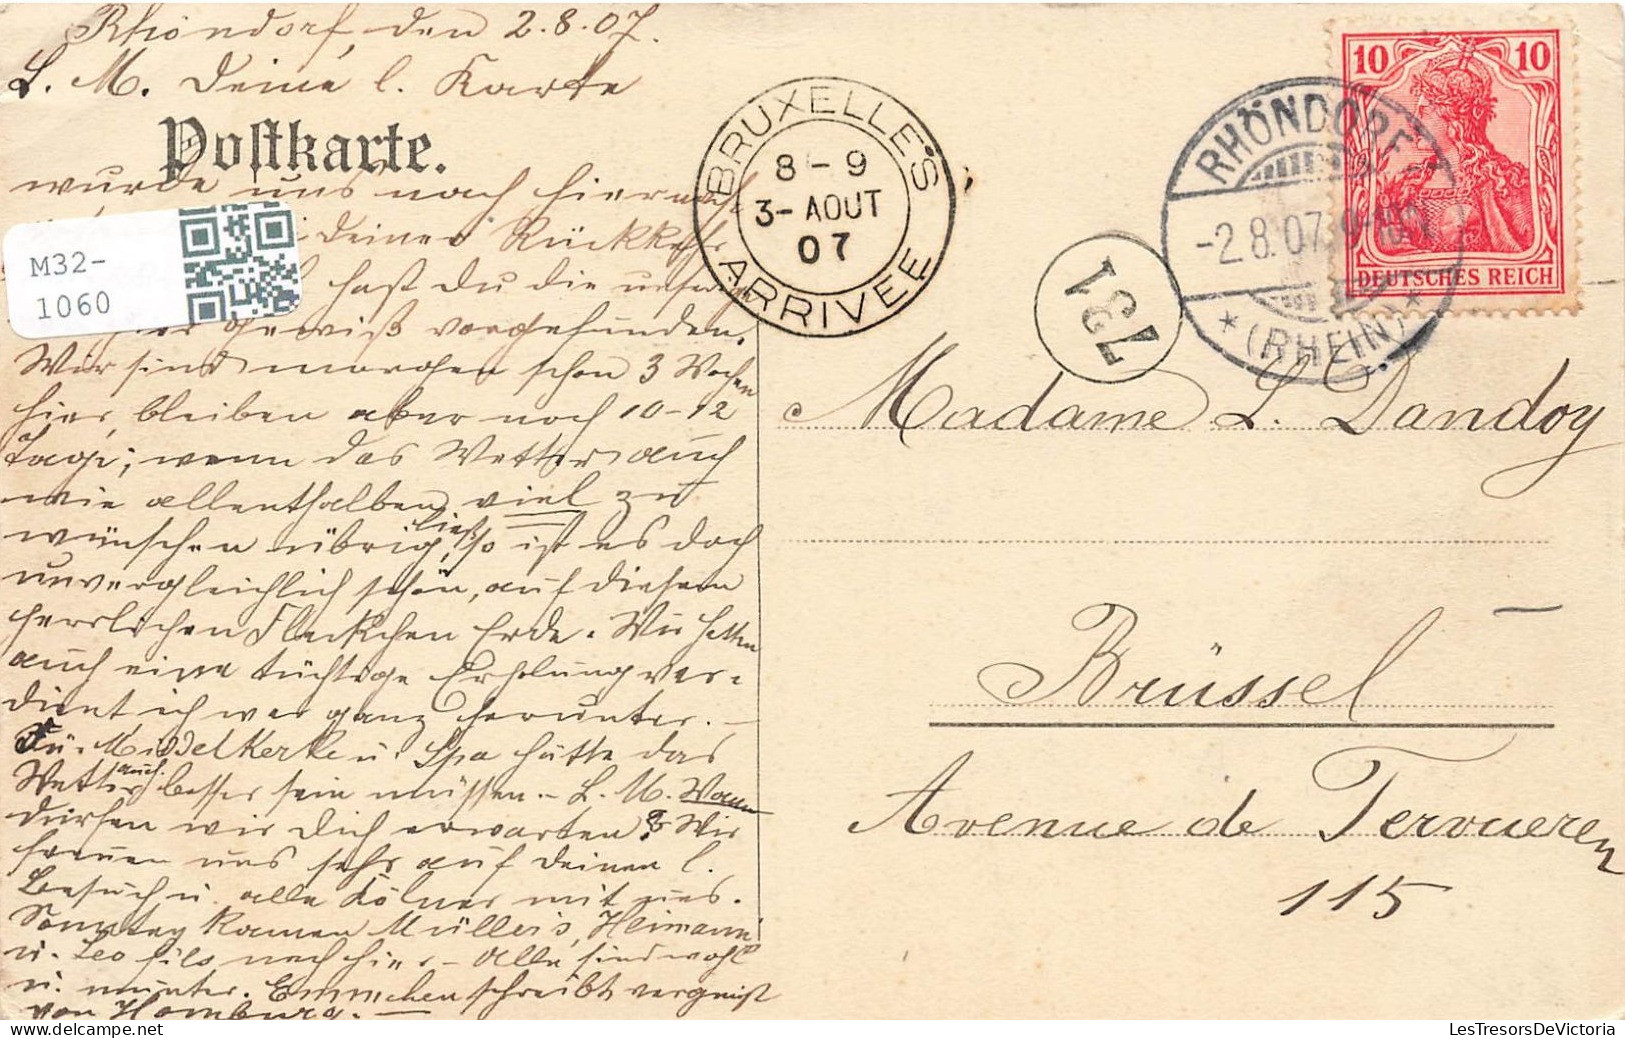 Rhöndorf, den 2.8.07.
L. M. Deine l. Karte
Postkarte.
wurde uns nach hier nach-
deiner Rückkehr
hast Du die unsrige
gewiß vorgefunden.
Wir sind morgen schon 3 Wochen
hier, bleiben aber noch 10-12
Tage; wenn das Wetter auch
wie allenthalben viel zu
wünschen übrig ließ, so ist es doch
unvergleichlich schön, auf diesem
herrlichen Fleckchen Erde. Wir hatten
auch eine tüchtige Erholung ver-
dient, ich war ganz herunter. —
In Middelkerke u. Spa hätte das
Wetter auch besser sein müssen. — L. M. Wann
dürfen wir Dich erwarten? Wir
freuen uns sehr auf Deinen l.
Besuch u. alle Kölner mit uns.
Sonntag kamen Müller's, Heimann
u. Leo fils nach hier — Alle sind wohl
u. munter. Emmchen schreibt vergnügt
von Homburg. —
M32-
1060
BRUXELLES
8-9
3-AOUT
07
ARRIVEE
731
RHÖNDORF
-2.8.07.
* (RHEIN) *
10 10
DEUTSCHES REICH
Madame L. Dandoy
Brüssel
Avenue de Tervueren
115
LesTresorsDeVictoria